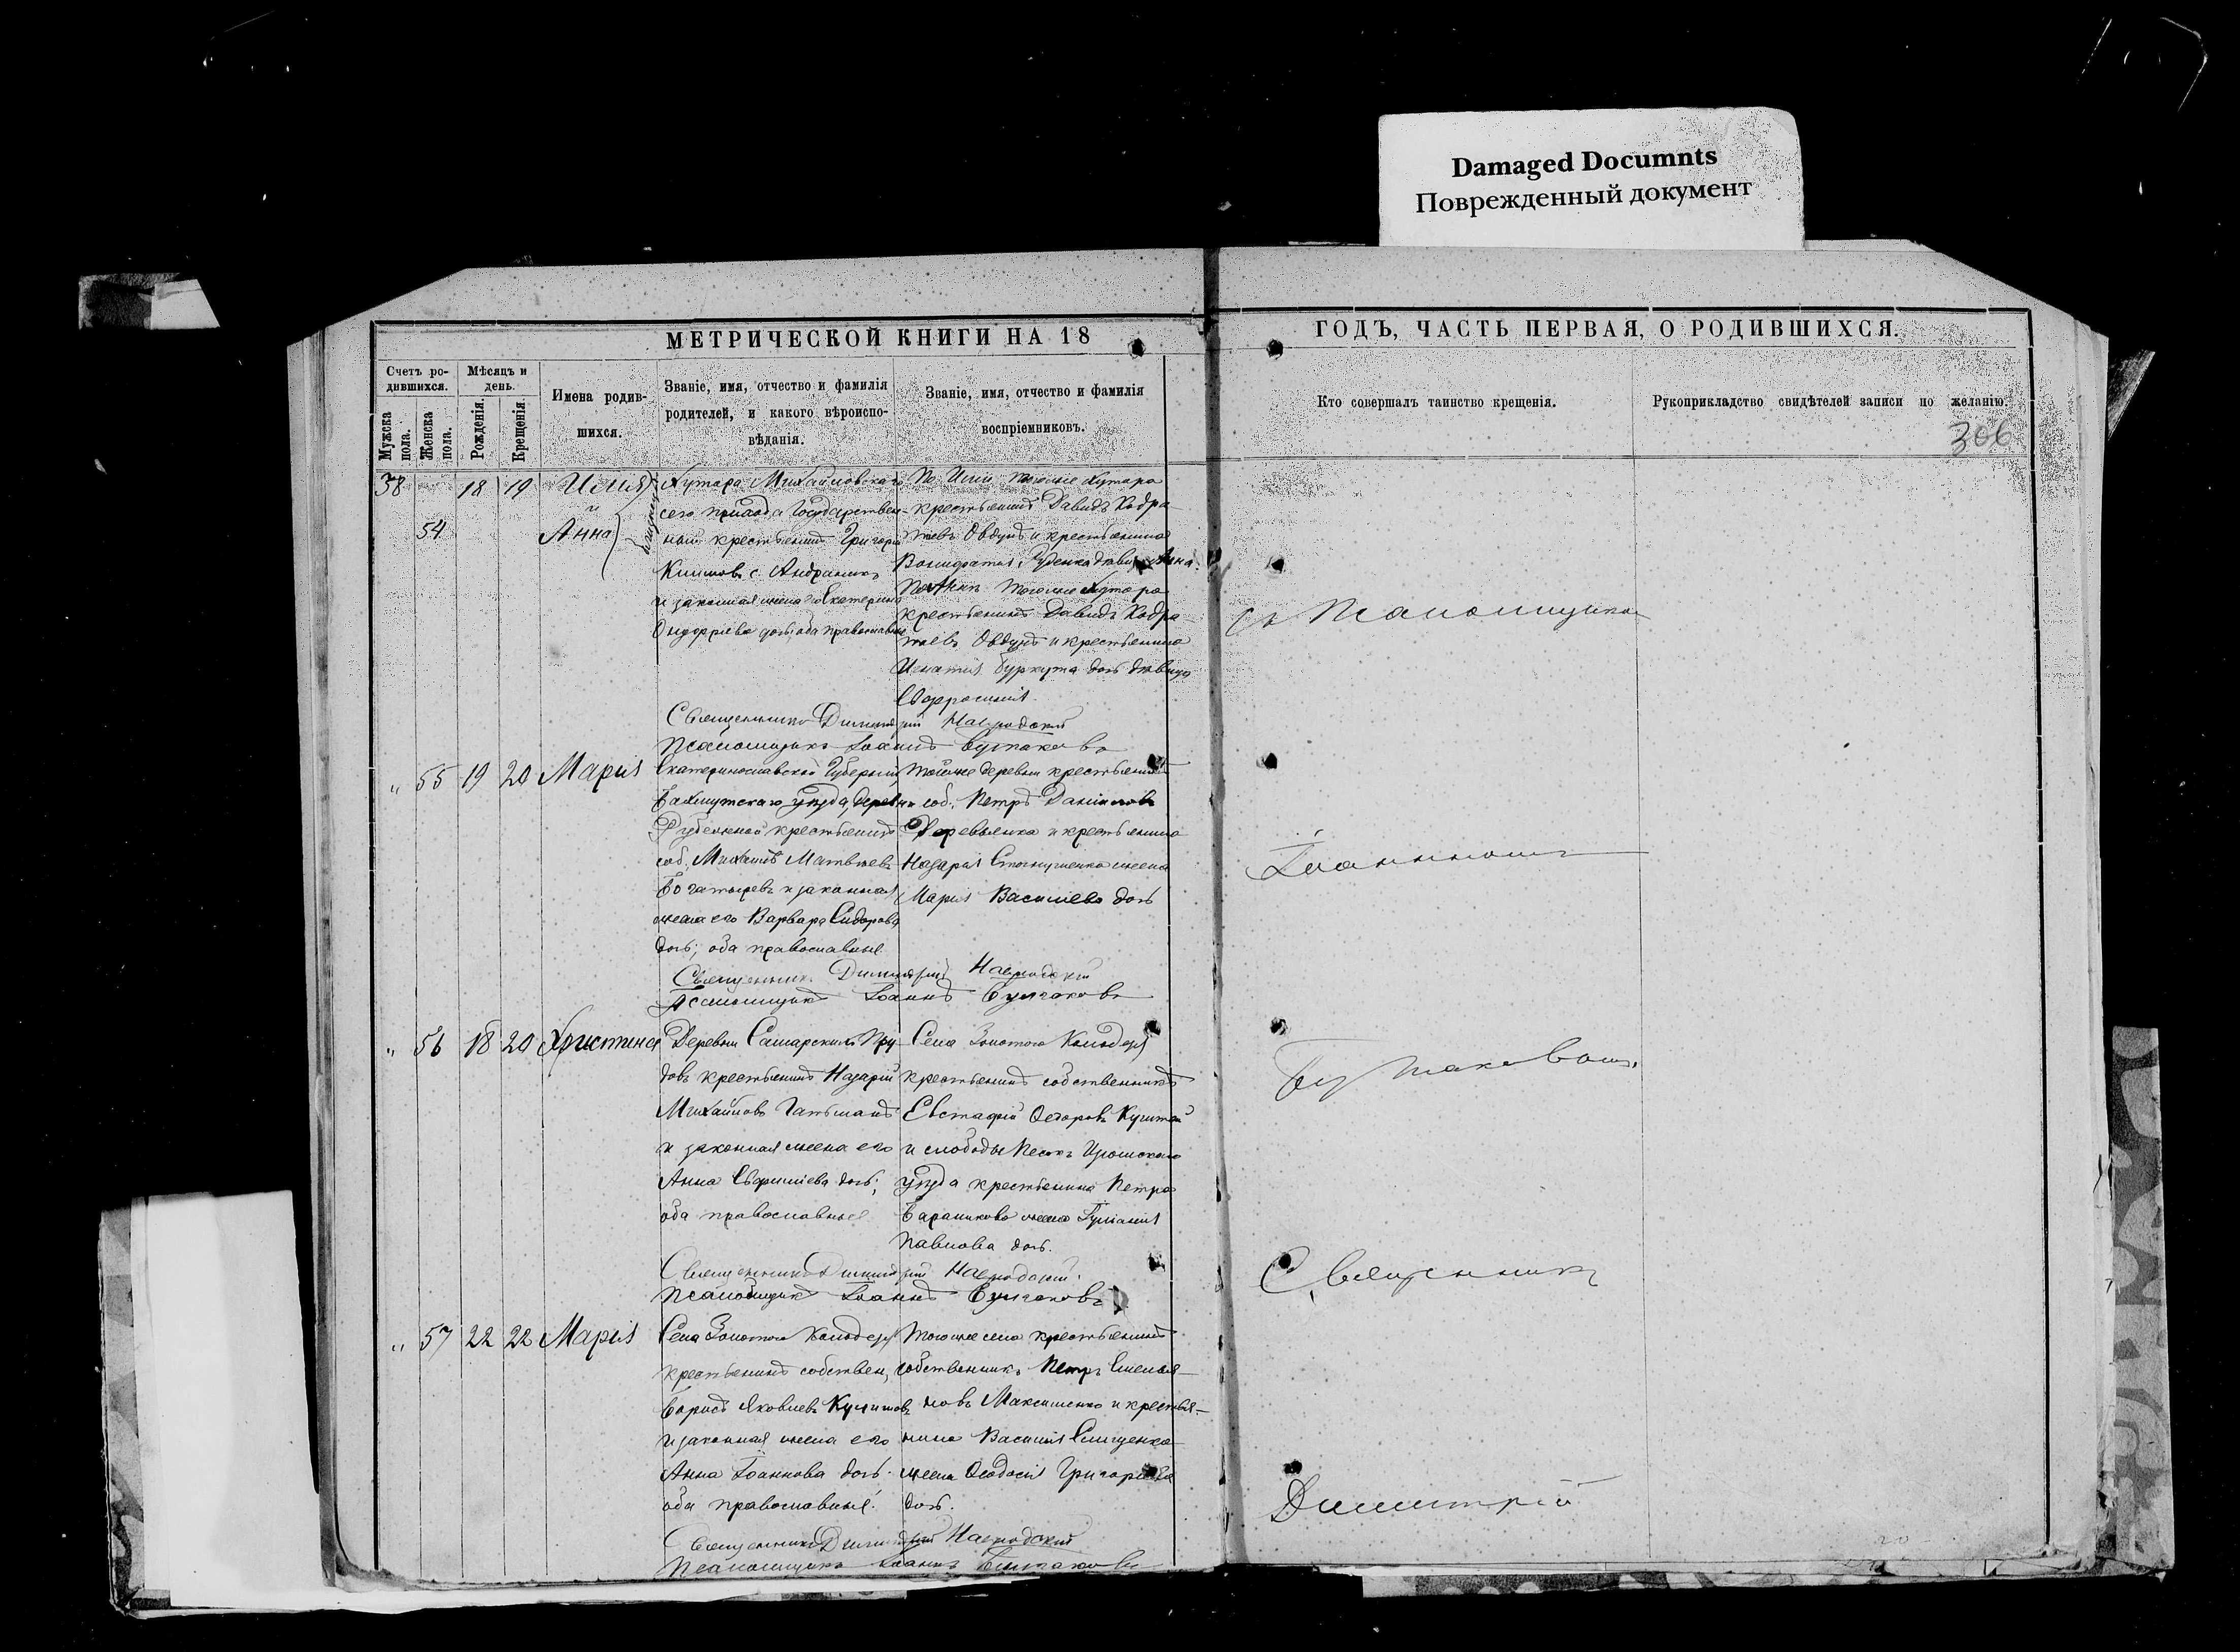 Damaged Documnts
Поврежденный документ
МЕТРИЧЕСКОЙ КНИГИ НА 18
ГОДЪ, ЧАСТЬ ПЕРВАЯ, О РОДИВШИХСЯ.
Счетъ ро-
дившихся.
Мужска пола.
Женска пола.
Мѣсяцъ и
день.
Рожденія.
Крещенія
Имена родив-
шихся.
Званіе, имя, отчество и фамилія
родителей, и какого вѣроиспо-
вѣданія.
Званіе, имя, отчество и фамилія
воспріемниковъ.
Кто совершалъ таинство крещенія.
Рукоприкладство свидѣтелей записи по желанію.
306
38 18 19 Илія
и
54 Анна
Хутора Михайловскаго
сего прихода Государствен-
ный крестьянинъ Григорій
Климовъ с. Андраникъ
и законная жена его Екатерина
дочь, оба православные
По Иліи тогоже хутора
крестьянинъ Давидъ Кодра
тьевъ Овдунъ и крестьянина
Руденка Анна.
По Аннѣ тогоже хутора
крестьянинъ Давидъ Кодра
тьевъ Овдунъ и крестьянина
Игнатія Буркута дочь дѣвица
Евфросинія.
Священникъ Димитрій
Псаломщикъ Іоаннъ Булгаковъ
" 55 19 20 Марія
Екатеринославской Губерніи
Бахмутскаго уѣзда, дерев
крестьянинъ
соб. Михаилъ Матвѣевъ
Богатыревъ и законная
жена его Варвара Сидорова
дочь; оба православные
тойже деревни крестьянинъ
соб. Петръ Даниловъ
Деревянка и крестьянина
Назарія жена
Марія Василіева дочь
Священникъ Димитрій
Псаломщикъ Іоаннъ Булгаковъ
" 56 18 20 Христина
Деревни Самарскихъ Пру-
довъ крестьянинъ Назарій
Михайловъ Гатьманъ
и законная жена его
Анна дочь;
оба православные
Села Золотого Колодезя
крестьянинъ собственникъ
Евстафій
и слободы Изюмскаго
уѣзда крестьянина Петра
Бараникова жена
Павлова дочь.
Священникъ Димитрій
Псаломщикъ Іоаннъ Булгаковъ
" 57 22 22 Марія
Села Золотого Колодезя
крестьянинъ собствен,
Борисъ Яковлевъ
и законная жена его
Анна Іоаннова дочь.
оба православные.
тогоже села крестьянинъ
собственникъ Петръ Емелья-
новъ Максименко и крестья-
нина Василія
жена Ѳеодосія Григорьева
дочь.
Священникъ Димитрій
Псаломщикъ Іоаннъ Булгаковъ
Съ Псаломщикомъ
Іоанномъ
Булгаковымъ.
Священникъ
Димитрій